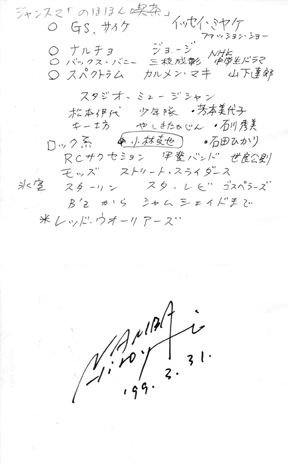 ジャンスマ「のほほん喫茶」
○ GS、サイケ イッセイ・ミヤケ
ファッション・ショー
○ ナルチョ ジョージ NHK
○ バックス・バニー 三枝成彰 中学生ドラマ
○ スペクトラム カルメン・マキ 山下達郎
スタジオ・ミュージシャン
松本伊代 少年隊 ・芳本美代子
キー坊 やしきたかじん ・石川秀美
ロック系 小林克也 ・石田ひかり
RCサクセション 甲斐バンド 世良公則
モッズ ストリート・スライダーズ
氷室 スターリン スタ・レビ ゴスペラーズ
B'z から シャムシェイドまで
※レッド・ウォーリアーズ
NAMBA
Hiroyuki
'99. 3. 31.